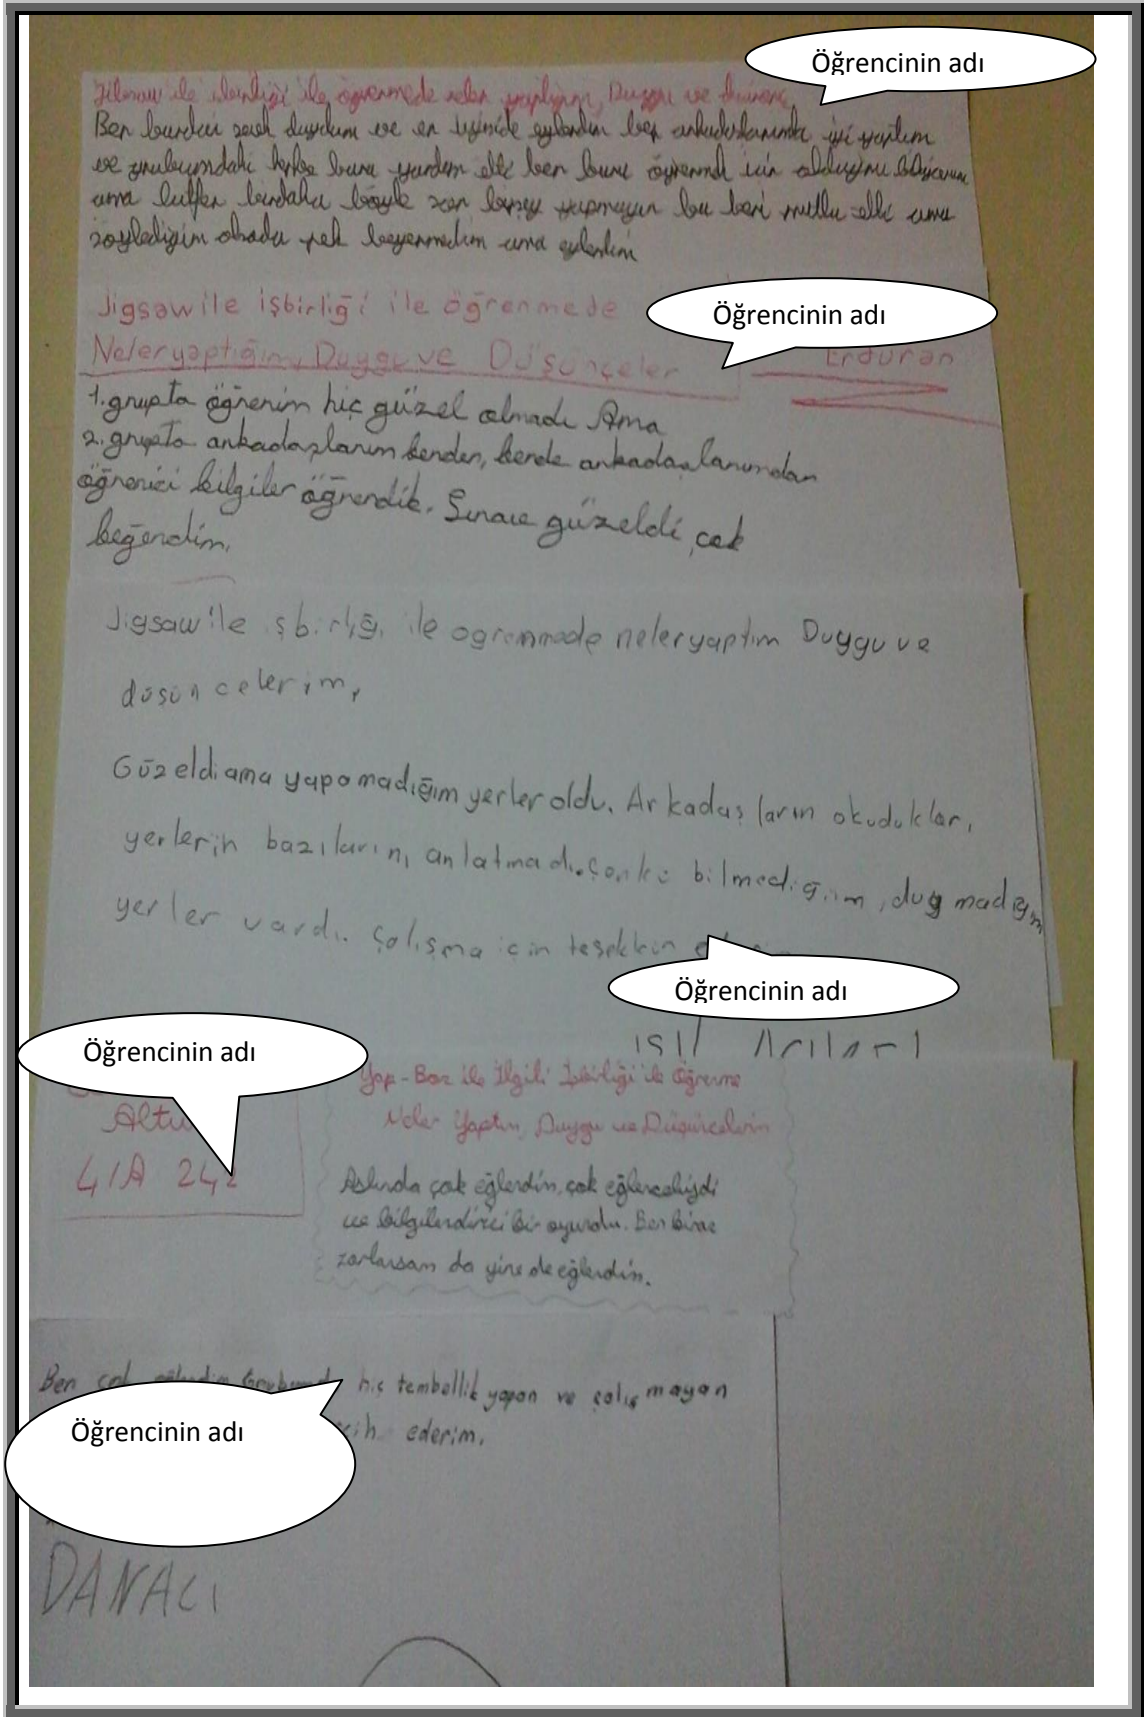 Öğrencinin adı
ile öğrenmede neler yaptığım, Duygu ve
Ben burdan zevk duydum ve en
ve grubumdaki herkes bana yardım etti ben bunu öğrenmek için olduğunu biliyorum
ama lütfen birdaha böyle zor birşey yapmayın bu beni mutlu etti ama
söylediğim olsada pek beğenmedim ama eylendim
Jigsaw ile işbirliği ile öğrenmede
Öğrencinin adı
Neler yaptığım, Duygu ve Düşünçeler
Erduran
1. grupta öğrenim hiç güzel olmadı Ama
2. grupta arkadaşlarım benden, bende arkadaşlarımdan
öğrenici bilgiler öğrendik. Sınav güzeldi, çok
beğendim.
Jigsaw ile işbirliği ile ogrenmede neler yaptım Duygu ve
düşüncelerim,
Güzeldi ama yapamadığım yerler oldu. Arkadaşların okudukları
yerlerin bazılarını anlatmadı. Çünkü bilmediğim, duymadığım
yerler vardı. Çalışma için teşekkür
Öğrencinin adı
Öğrencinin adı
Altu
4/A 242
Yap-Boz ile İlgili İşbirliği ile Öğrenme
Neler Yaptım, Duygu ve Düşüncelerim
Aslında çok eğlendim, çok eğlenceliydi
ve bilgilendirici bir oyundu. Ben biraz
zorlansam da yine de eğlendim.
Ben çok
hiç tembellik yapan ve çalışmayan
ederim.
Öğrencinin adı
DANACI